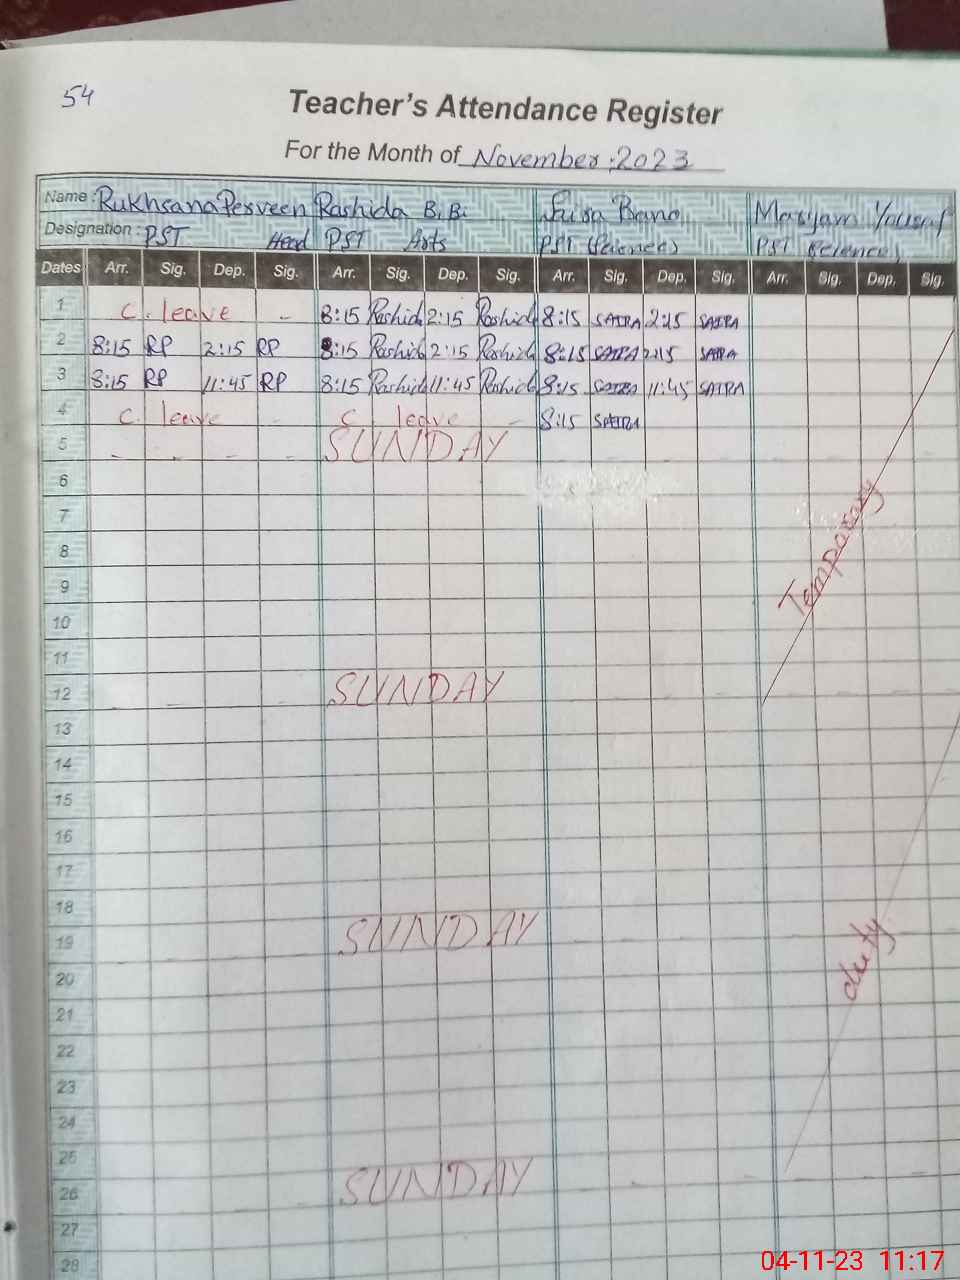 54
Teacher's Attendance Register
For the Month of November, 2023
Name : Rukhsana Perveen Rashida BiBi Saira Bano Mariyam Yousaf
Designation : PST Head PST Arts PST (Science) PST (Science)
Dates Arr. Sig. Dep. Sig. Arr. Sig. Dep. Sig. Arr. Sig. Dep. Sig. Arr. Sig. Dep. Sig.
1 C. leave - 8:15 Rashida 2:15 Rashida 8:15 SAIRA 2:15 SAIRA
2 8:15 RP 2:15 RP 8:15 Rashida 2:15 Rashida 8:15 SAIRA 2:15 SAIRA
3 8:15 RP 11:45 RP 8:15 Rashida 11:45 Rashida 8:15 SAIRA 11:45 SAIRA
4 C. leave - C leave - 8:15 SAIRA
5 - - - - SUNDAY
6
7
8
9
Temporary
10
11
12 SUNDAY
13
14
15
16
17
18
19 SUNDAY
duty
20
21
22
23
24
25
26 SUNDAY
27
28
04-11-23 11:17